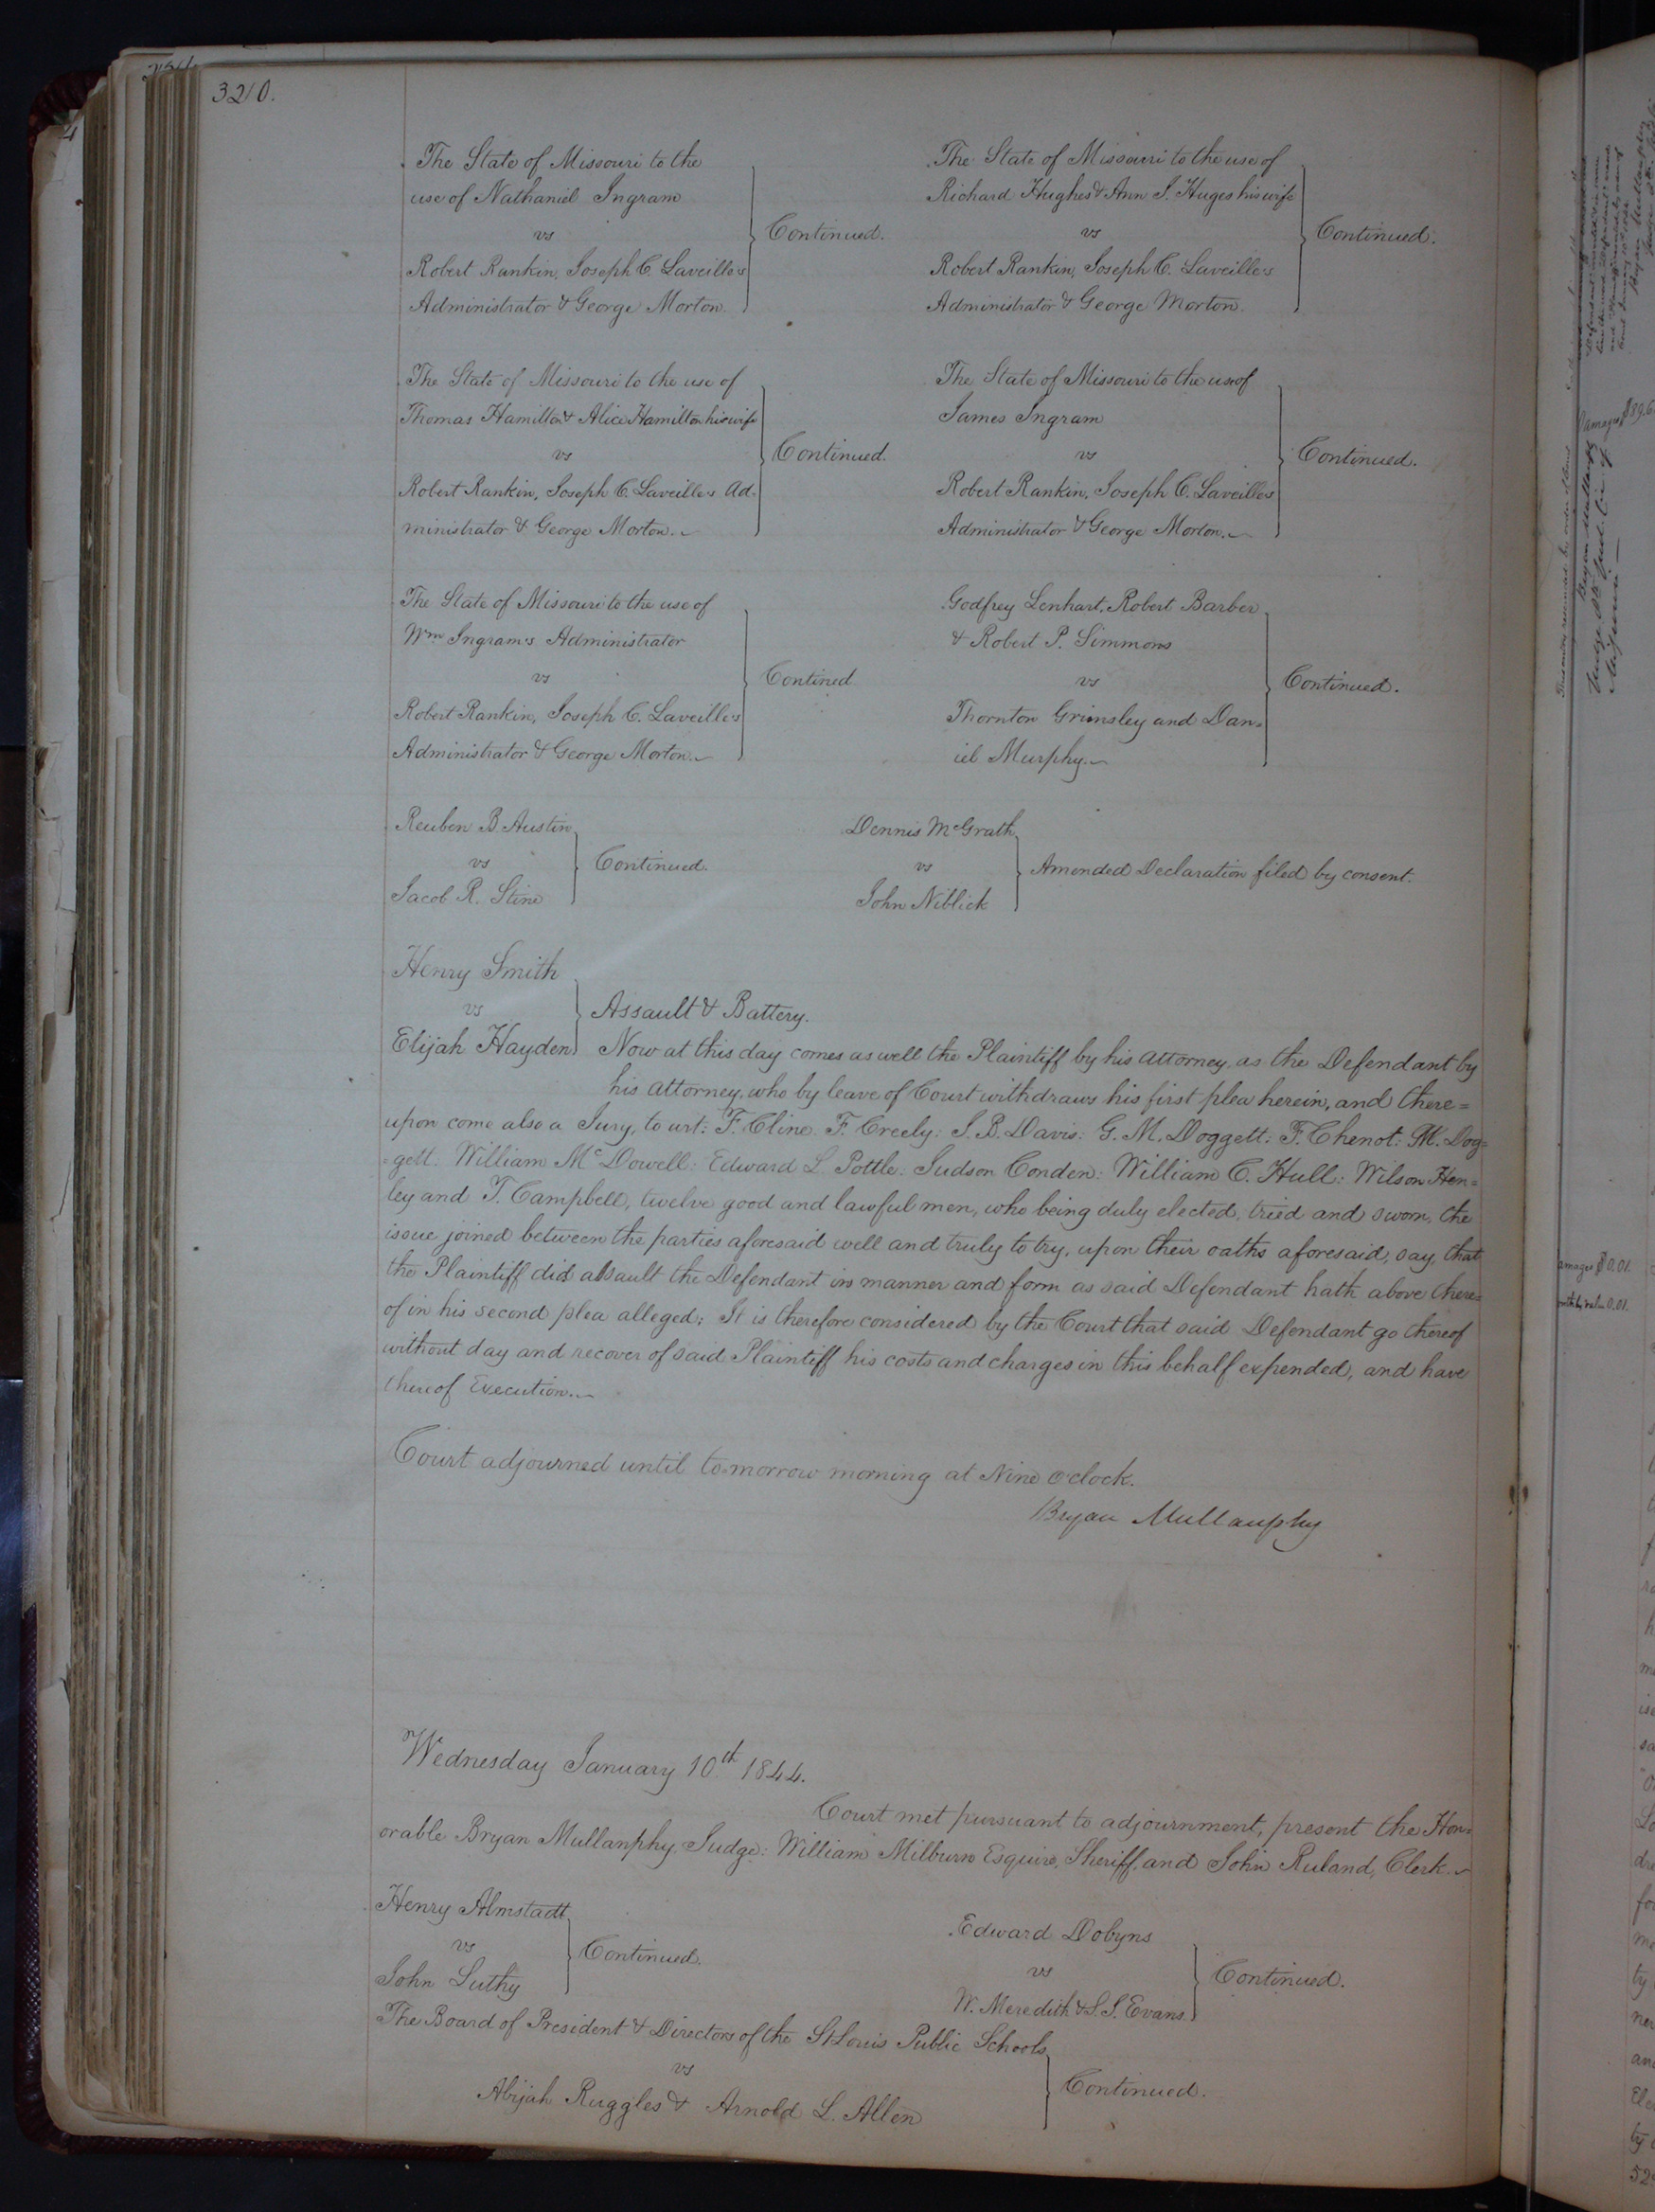 320.
The State of Missouri to the
use of Nathaniel Ingram
vs
Robert Rankin, Joseph C. Laveille's
Administrator & George Morton.
Continued.
The State of Missouri to the use of
Richard Hughes & Ann S. Huges his wife
vs
Robert Rankin, Joseph C. Laveille's
Administrator & George Morton.
Continued.
The State of Missouri to the use of
Thomas Hamilton & Alice Hamilton his wife
vs
Robert Rankin, Joseph C. Laveille's Ad-
ministrator & George Morton.
Continued.
The State of Missouri to the use of
James Ingram
vs
Robert Rankin, Joseph C. Laveille's
Administrator & George Morton.
Continued.
The State of Missouri to the use of
Wm Ingram's Administrator
vs
Robert Rankin, Joseph C. Laveille's
Administrator & George Morton.
Contined
Godfrey Lenhart, Robert Barber
& Robert P. Simmons
vs
Thornton Grimsley and Dan=
iel Murphy.
Continued.
Reuben B. Austin
vs
Jacob R. Stine
Continued.
Dennis McGrath
vs
John Niblick
Amended Declaration filed by consent.
Henry Smith
vs
Elijah Hayden
Assault & Battery.
Now at this day comes as well the Plaintiff by his attorney, as the Defendant by
his attorney, who by leave of Court withdraws his first plea herein, and there=
upon come also a Jury, to wit: F. Cline. F. Creely: J. B. Davis: G. M. Doggett: F. Chenot: M. Dog=
=gett. William McDowell: Edward L. Pottle: Judson Conden: William C. Hull: Wilson Hen=
ley and T. Campbell, twelve good and lawful men, who being duly elected, tried and sworn, the
issue joined between the parties aforesaid well and truly to try, upon their oaths aforesaid, say, that
the Plaintiff did assault the Defendant in manner and form as said Defendant hath above there=
of in his second plea alleged; It is therefore considered by the Court that said Defendant go thereof
without day and recover of said Plaintiff his costs and charges in this behalf expended, and have
thereof Execution.
Court adjourned until tomorrow morning at Nine o'clock.
Bryan Mullanphy
Wednesday January 10th 1844.
Court met pursuant to adjournment, present the Hon=
orable Bryan Mullanphy, Judge: William Milburn Esquire, Sheriff, and John Ruland, Clerk.
Henry Almstadt
vs
John Luthy
Continued.
Edward Dobyns
vs
W. Meredith & S. S. Evans.
Continued.
The Board of President & Directors of the St Louis Public Schools
vs
Abijah Ruggles & Arnold L. Allen
Continued.